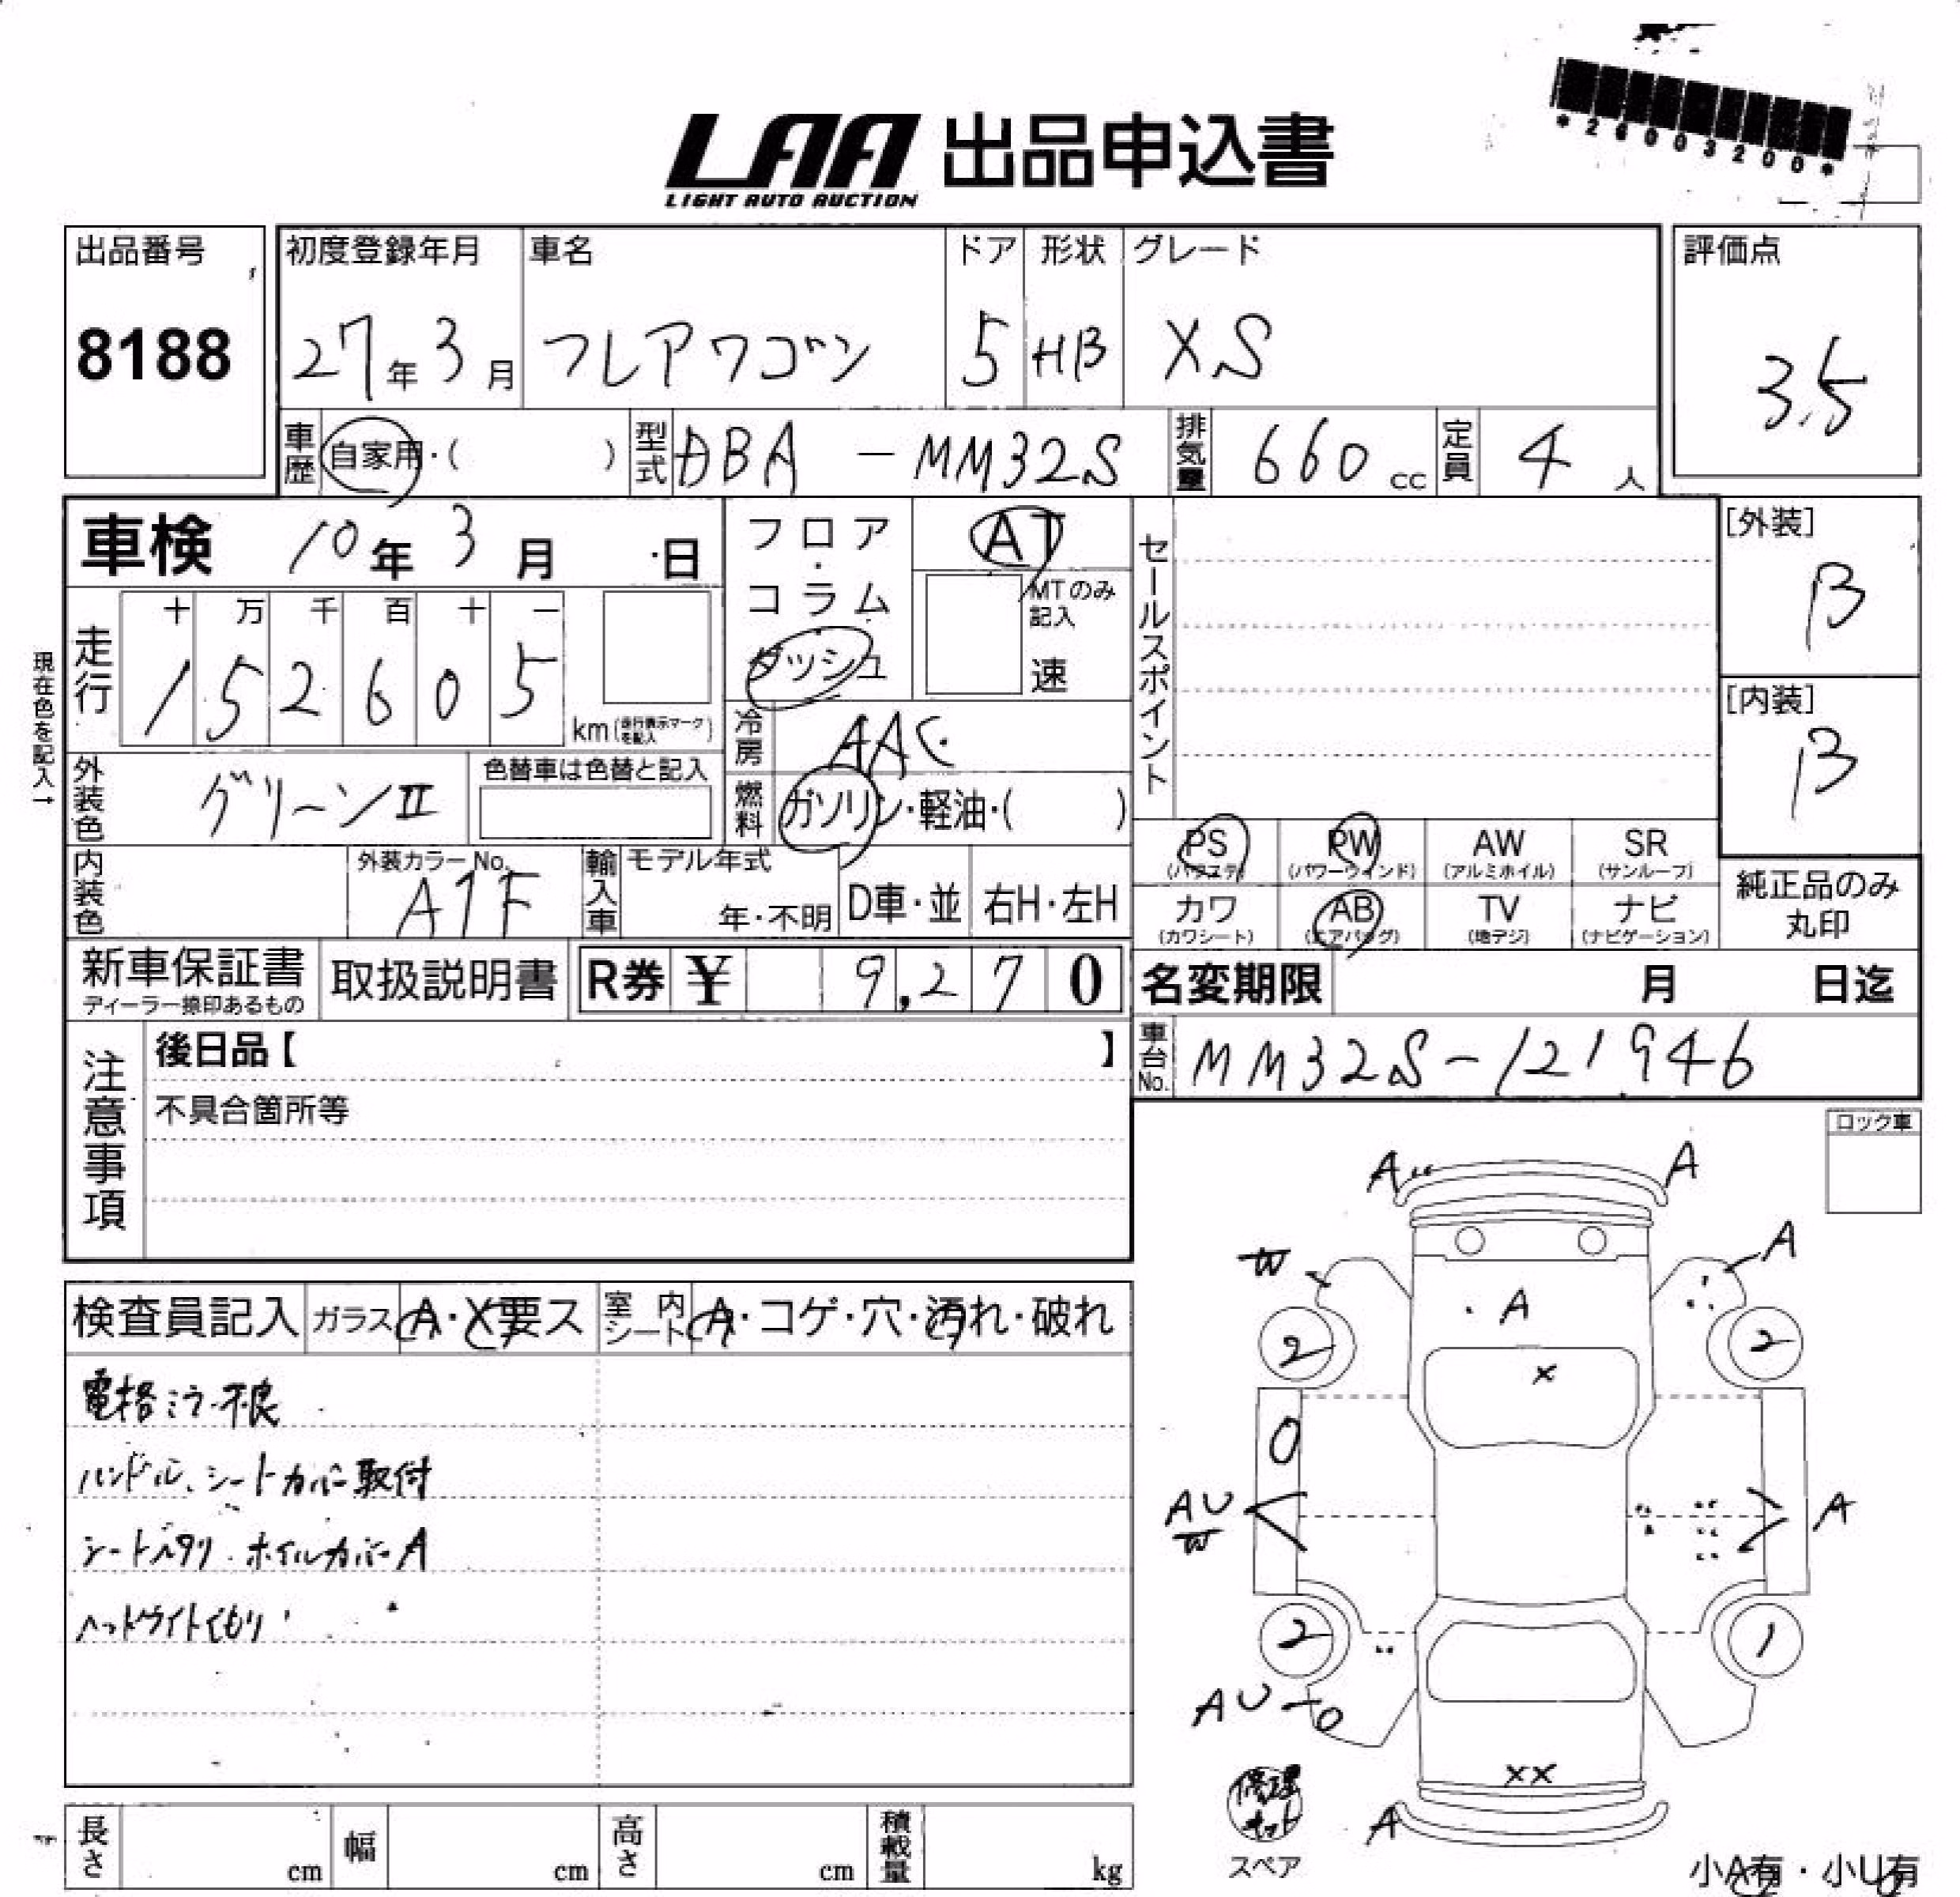 *26003200*
LAA 出品申込書
LIGHT AUTO AUCTION
出品番号
8188
初度登録年月
27年3月
車名
フレアワゴン
ドア
5
形状
HB
グレード
XS
評価点
3.5
車歴 自家用・( )
型式 DBA-MM32S
排気量 660cc
定員 4人
車検 10年3月 日
走行
十万千百十一
152605
km(走行表示マークを記入)
現在色を記入→
フロア・コラム・ダッシュ
AT
MTのみ記入
速
冷房 AAC
燃料 ガソリン・軽油・( )
外装色 グリーンII
色替車は色替と記入
内装色
外装カラーNo.
A1F
輸入車 モデル年式
年・不明
D車・並
右H・左H
セールスポイント
[外装]
B
[内装]
B
PS (パワステ)
PW (パワーウインド)
AW (アルミホイル)
SR (サンルーフ)
カワ (カワシート)
AB (エアバッグ)
TV (地デジ)
ナビ (ナビゲーション)
純正品のみ丸印
新車保証書
ディーラー捺印あるもの
取扱説明書
R券 ¥ 9,270
名変期限 月 日迄
車台No. MM32S-121946
注意事項
後日品【 】
不具合箇所等
ロック車
検査員記入
ガラス A・X要ス
室内シート A・コゲ・穴・汚れ・破れ
電格ミラー不良
ハンドル、シートカバー取付
シートヘタリ・ホイルカバーA
ヘッドライトくもり
A A
W A
A
2 2
X
0
AU W A
2 1
AU
XX
A
修理キット
スペア
小A有・小U有
長さ cm
幅 cm
高さ cm
積載量 kg